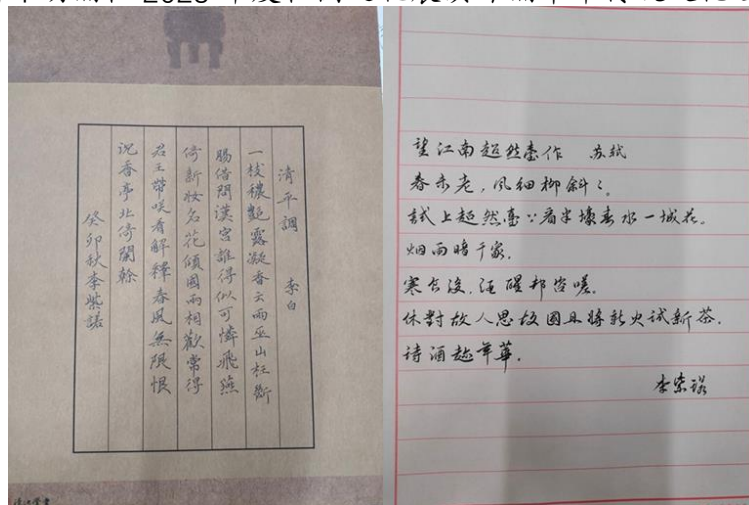 清平調 李白
一枝穠艷露凝香云雨巫山枉斷
腸借問漢宮誰得似可憐飛燕
倚新妆名花傾國兩相歡常得
君王帶咲看解釋春风無限恨
沉香亭北倚闌榦
癸卯秋李紫諾
望江南超然臺作 苏轼
春未老,风细柳斜々。
試上超然臺〻看半壕春水一城花。
烟雨暗千家.
寒食後,酒醒却咨嗟。
休對故人思故國且將新火试新茶.
诗酒趁年華.
李紫諾